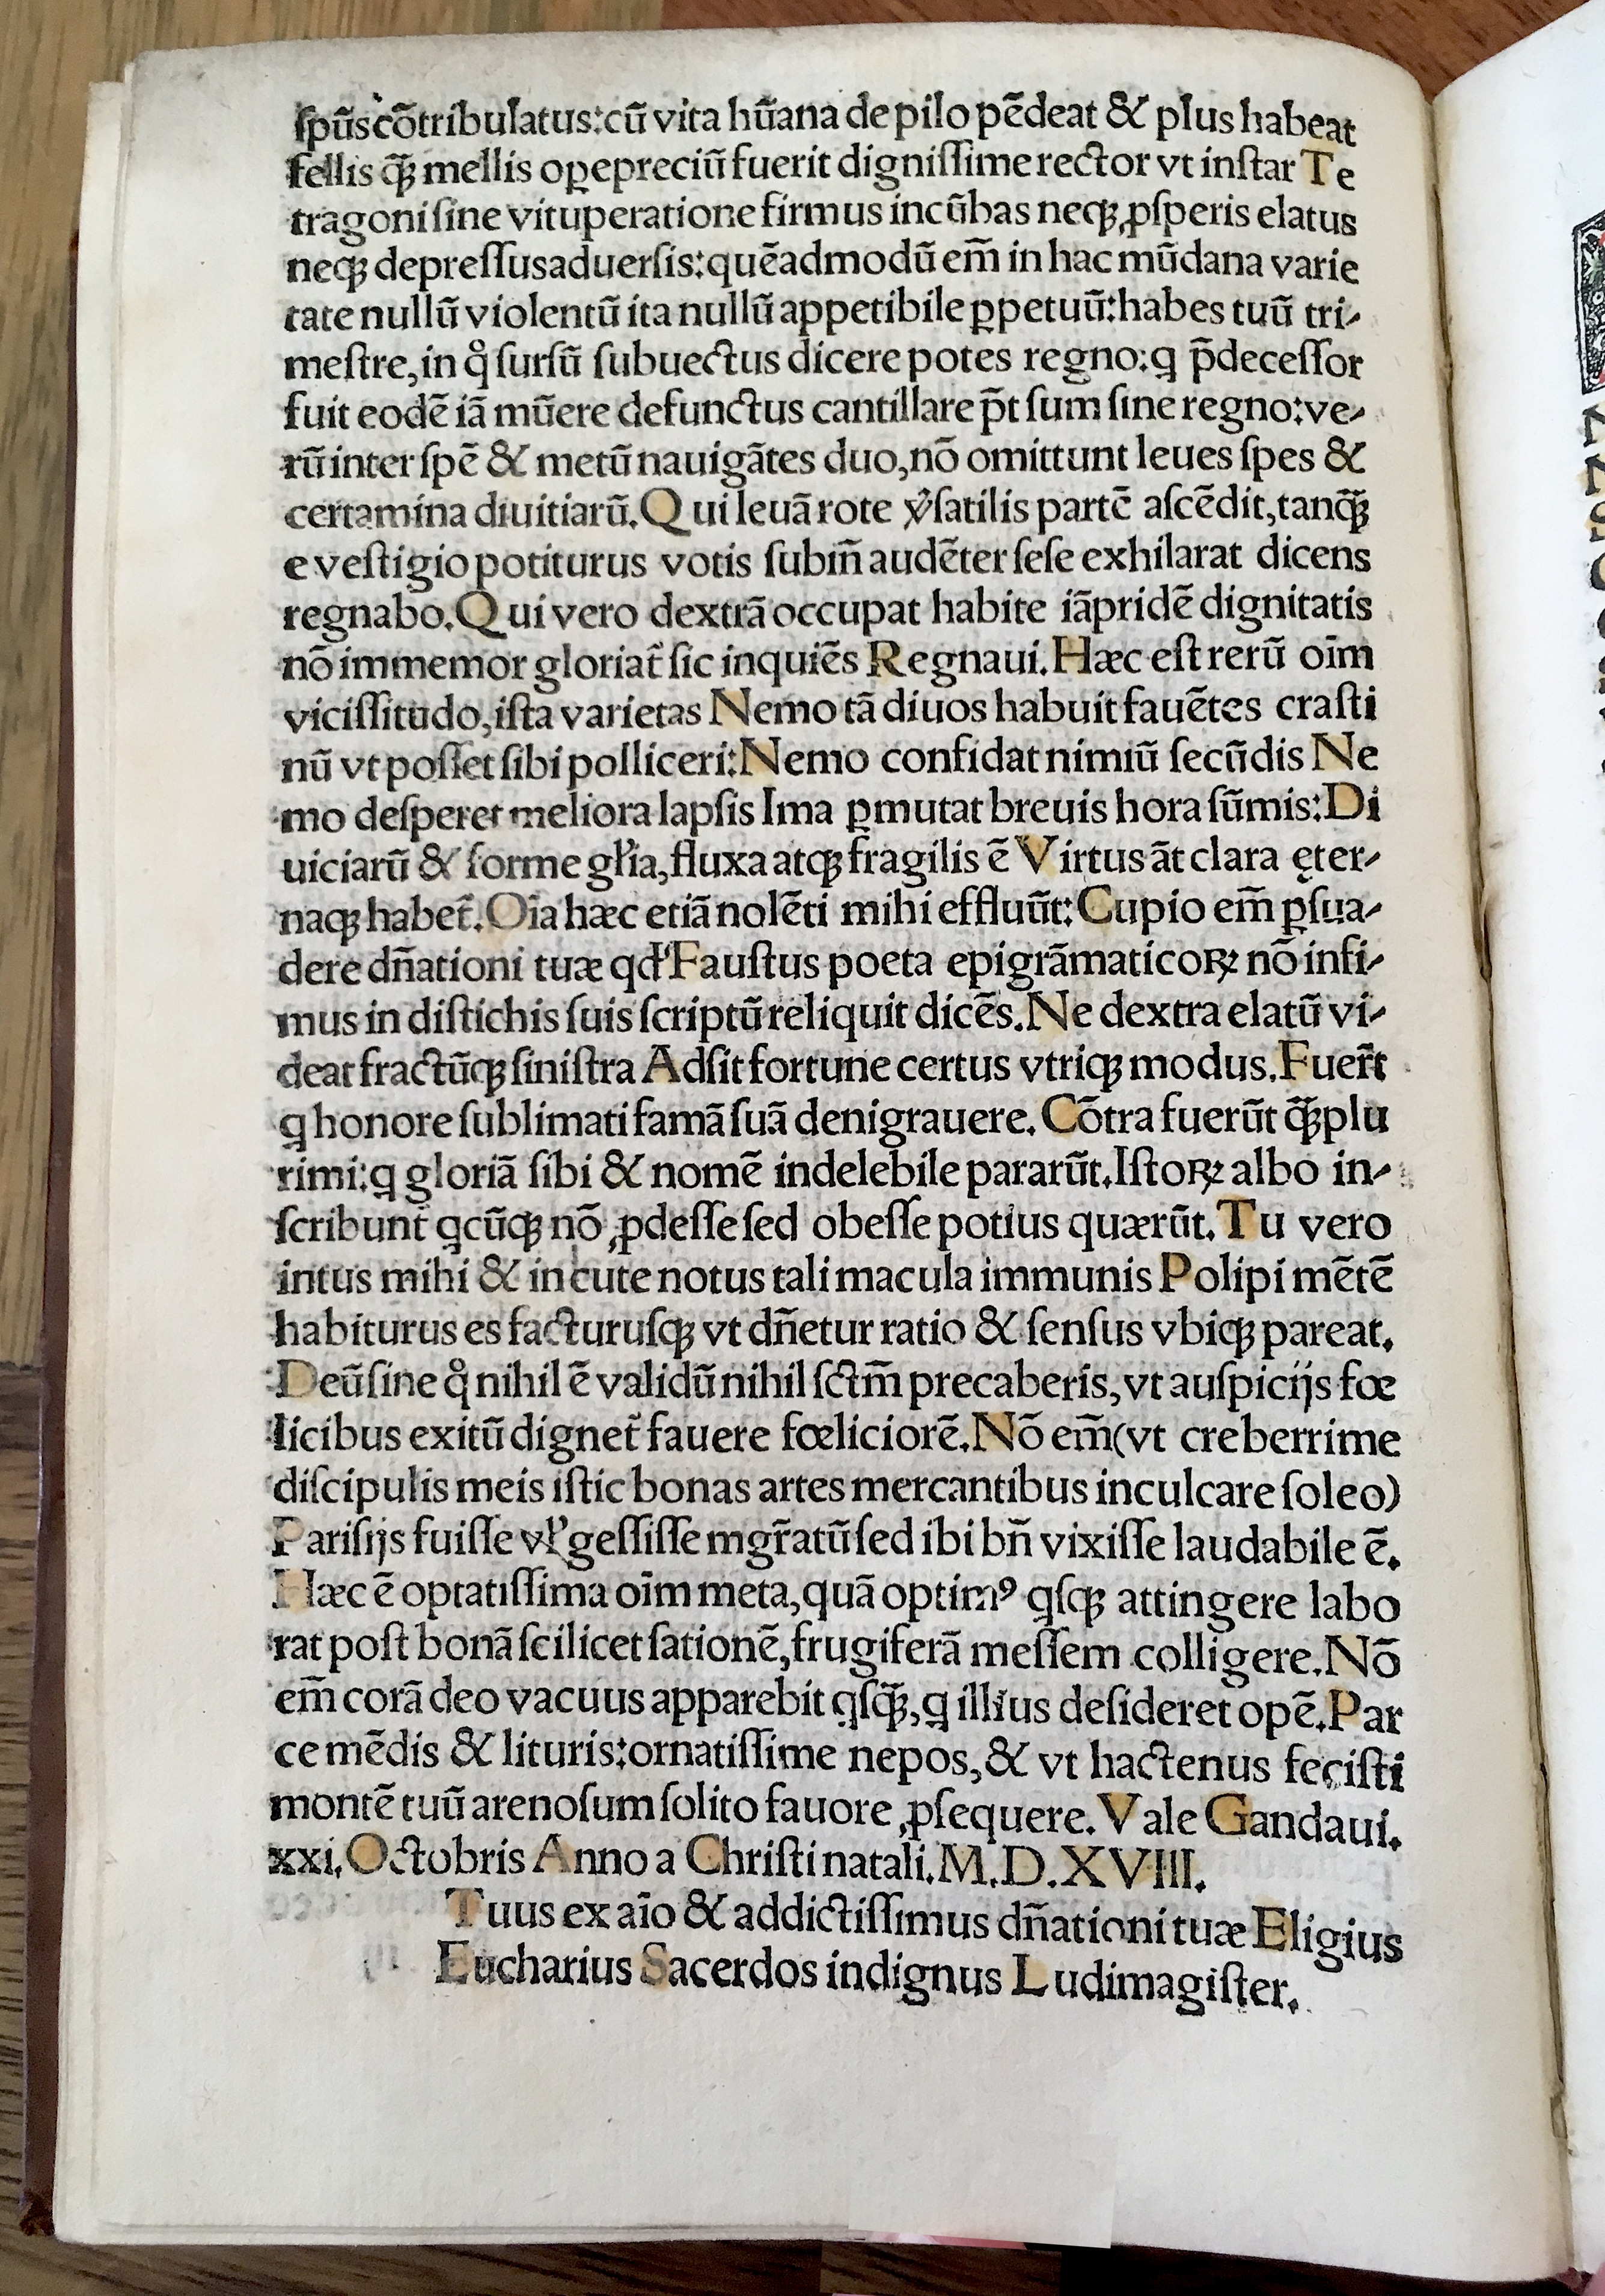 ſpūs cōtribulatus:cū vita hūana de pilo pēdeat & plus habeat
fellis qꝫ̄ mellis oꝑepreciū fuerit digniſſime rector vt inſtar Te
tragoni ſine vituperatione firmus incūbas neqꝫ ꝓſperis elatus
neqꝫ depreſſus aduerſis:quēadmodū em̄ in hac mūdana varie
tate nullū violentū ita nullū appetibile ꝑpetuū:habes tuū tri-
meſtre,in qͦ ſurſū ſubuectus dicere potes regno:ꝗ p̄deceſſor
fuit eodē iā mūere defunctus cantillare pt̄ ſum ſine regno:ve-
rū inter ſpē & metū nauigātes duo,nō omittunt leues ſpes &
certamina diuitiarū.Qui leuā rote v̓ſatilis partē aſcēdit,tanqꝫ̄
e veſtigio potiturus votis ſubin̄ audēter ſeſe exhilarat dicens
regnabo.Qui vero dextrā occupat habite iāpridē dignitatis
nō immemor gloriat̄ ſic inquiēs Regnaui.Hæc eſt rerū oīm
viciſſitudo,iſta varietas Nemo tā diuos habuit fauētes craſti
nū vt poſſet ſibi polliceri:Nemo confidat nimiū ſecūdis Ne
mo deſperet meliora lapſis Ima ꝑmutat breuis hora ſūmis:Di
uiciarū & forme gl̓ia,fluxa atqꝫ fragilis ē Virtus āt clara ęter-
naqꝫ habet̄.Oīa hæc etiā nolēti mihi effluūt:Cupio em̄ ꝑſua-
dere dn̄ationi tuæ qd̓ Fauſtus poeta epigrāmaticoꝝ nō infi-
mus in diſtichis ſuis ſcriptū reliquit dicēs.Ne dextra elatū vi-
deat fractūqꝫ ſiniſtra Adſit fortune certus vtriqꝫ modus.Fuer̄t
ꝗ honore ſublimati famā ſuā denigrauere.Cōtra fuerūt qꝫ̄plu
rimi:ꝗ gloriā ſibi & nomē indelebile pararūt.Iſtoꝝ albo in-
ſcribunt̄ ꝗcūqꝫ nō ꝓdeſſe ſed obeſſe potius quærūt.Tu vero
intus mihi & in cute notus tali macula immunis Polipi mētē
habiturus es facturuſqꝫ vt dn̄etur ratio & ſenſus vbiqꝫ pareat.
Deū ſine qͦ nihil ē validū nihil ſctm̄ precaberis,vt auſpicijs fœ
licibus exitū dignet̄ fauere fœliciorē.Nō em̄(vt creberrime
diſcipulis meis iſtic bonas artes mercantibus inculcare ſoleo)
Pariſijs fuiſſe vl̓ geſſiſſe mgr̄atū ſed ibi bn̄ vixiſſe laudabile ē.
Hæc ē optatiſſima oīm meta,quā optimꝰ ꝗſqꝫ attingere labo
rat poſt bonā ſcilicet ſationē,frugiferā meſſem colligere.Nō
em̄ corā deo vacuus apparebit ꝗſqꝫ̄,ꝗ illius deſideret opē.Par
ce mēdis & lituris:ornatiſſime nepos,& vt hactenus feciſti
montē tuū arenoſum ſolito fauore ꝓſequere.Vale Gandaui.
xxi.Octobris Anno a Chriſti natali.M.D.XVIII.
Tuus ex aīo & addictiſſimus dn̄ationi tuæ Eligius
Eucharius Sacerdos indignus Ludimagiſter.